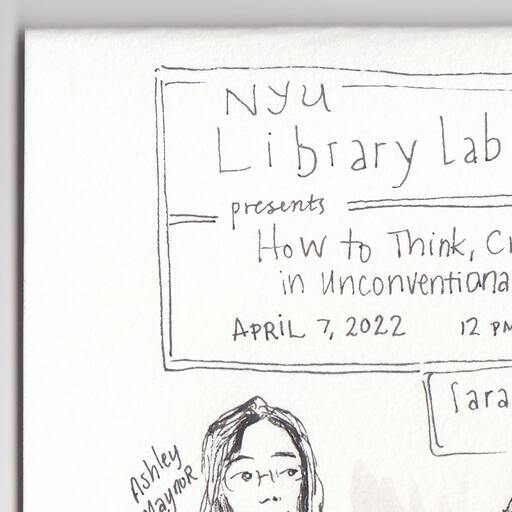 NYU
Library Lab
presents
How to Think, Cr
in Unconventiona
APRIL 7, 2022 12 PM
Sara
Ashley
Maynor